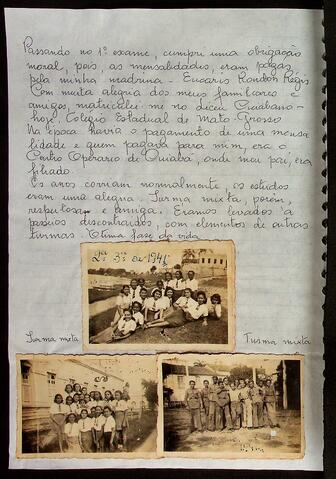 Passando no 1º exame, cumpri uma obrigação
moral, pois, as mensalidades, eram pagas
pela minha madrinha - Eucaris Rondon Régis
Com muita alegria dos meus familiares e
amigos, matriculei-me no Liceu Cuiabano -
hoje, Colégio Estadual de Mato-Grosso
Na época havia o pagamento de uma mensa
lidade e quem pagava para mim, era o
Centro Operário de Cuiabá, onde meu pai, era
filiado.
Os anos corriam normalmente, os estudos
eram uma alegria. Turma mixta, porém,
respeitosa e amiga. Éramos levados à
passeios descontraídos, com elementos de outras
turmas. Ótima fase da vida
de 1941
Turma mixta
Turma mixta